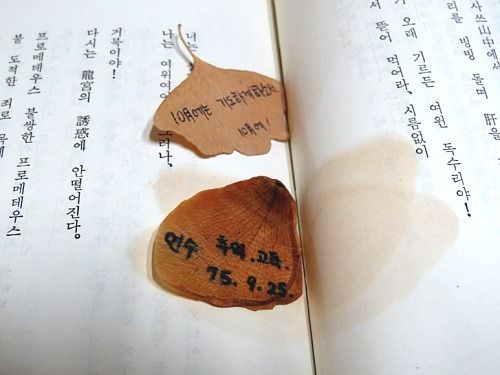 사쓰山中에서
리를 빙빙 肝을
가 오래 기르든 여윈 독수리야!
서 뜯어 먹어라, 시름없이
너는
나는 여위여 러나,
거북이야!
다시는 龍宮의 誘惑에 안떨어진다.
프로메테우스 불쌍한 프로메테우스
불 도적한 죄로 목에
10月에는 기도하게 하소서
10月에!
연수 추억.고독.
75. 9. 25.